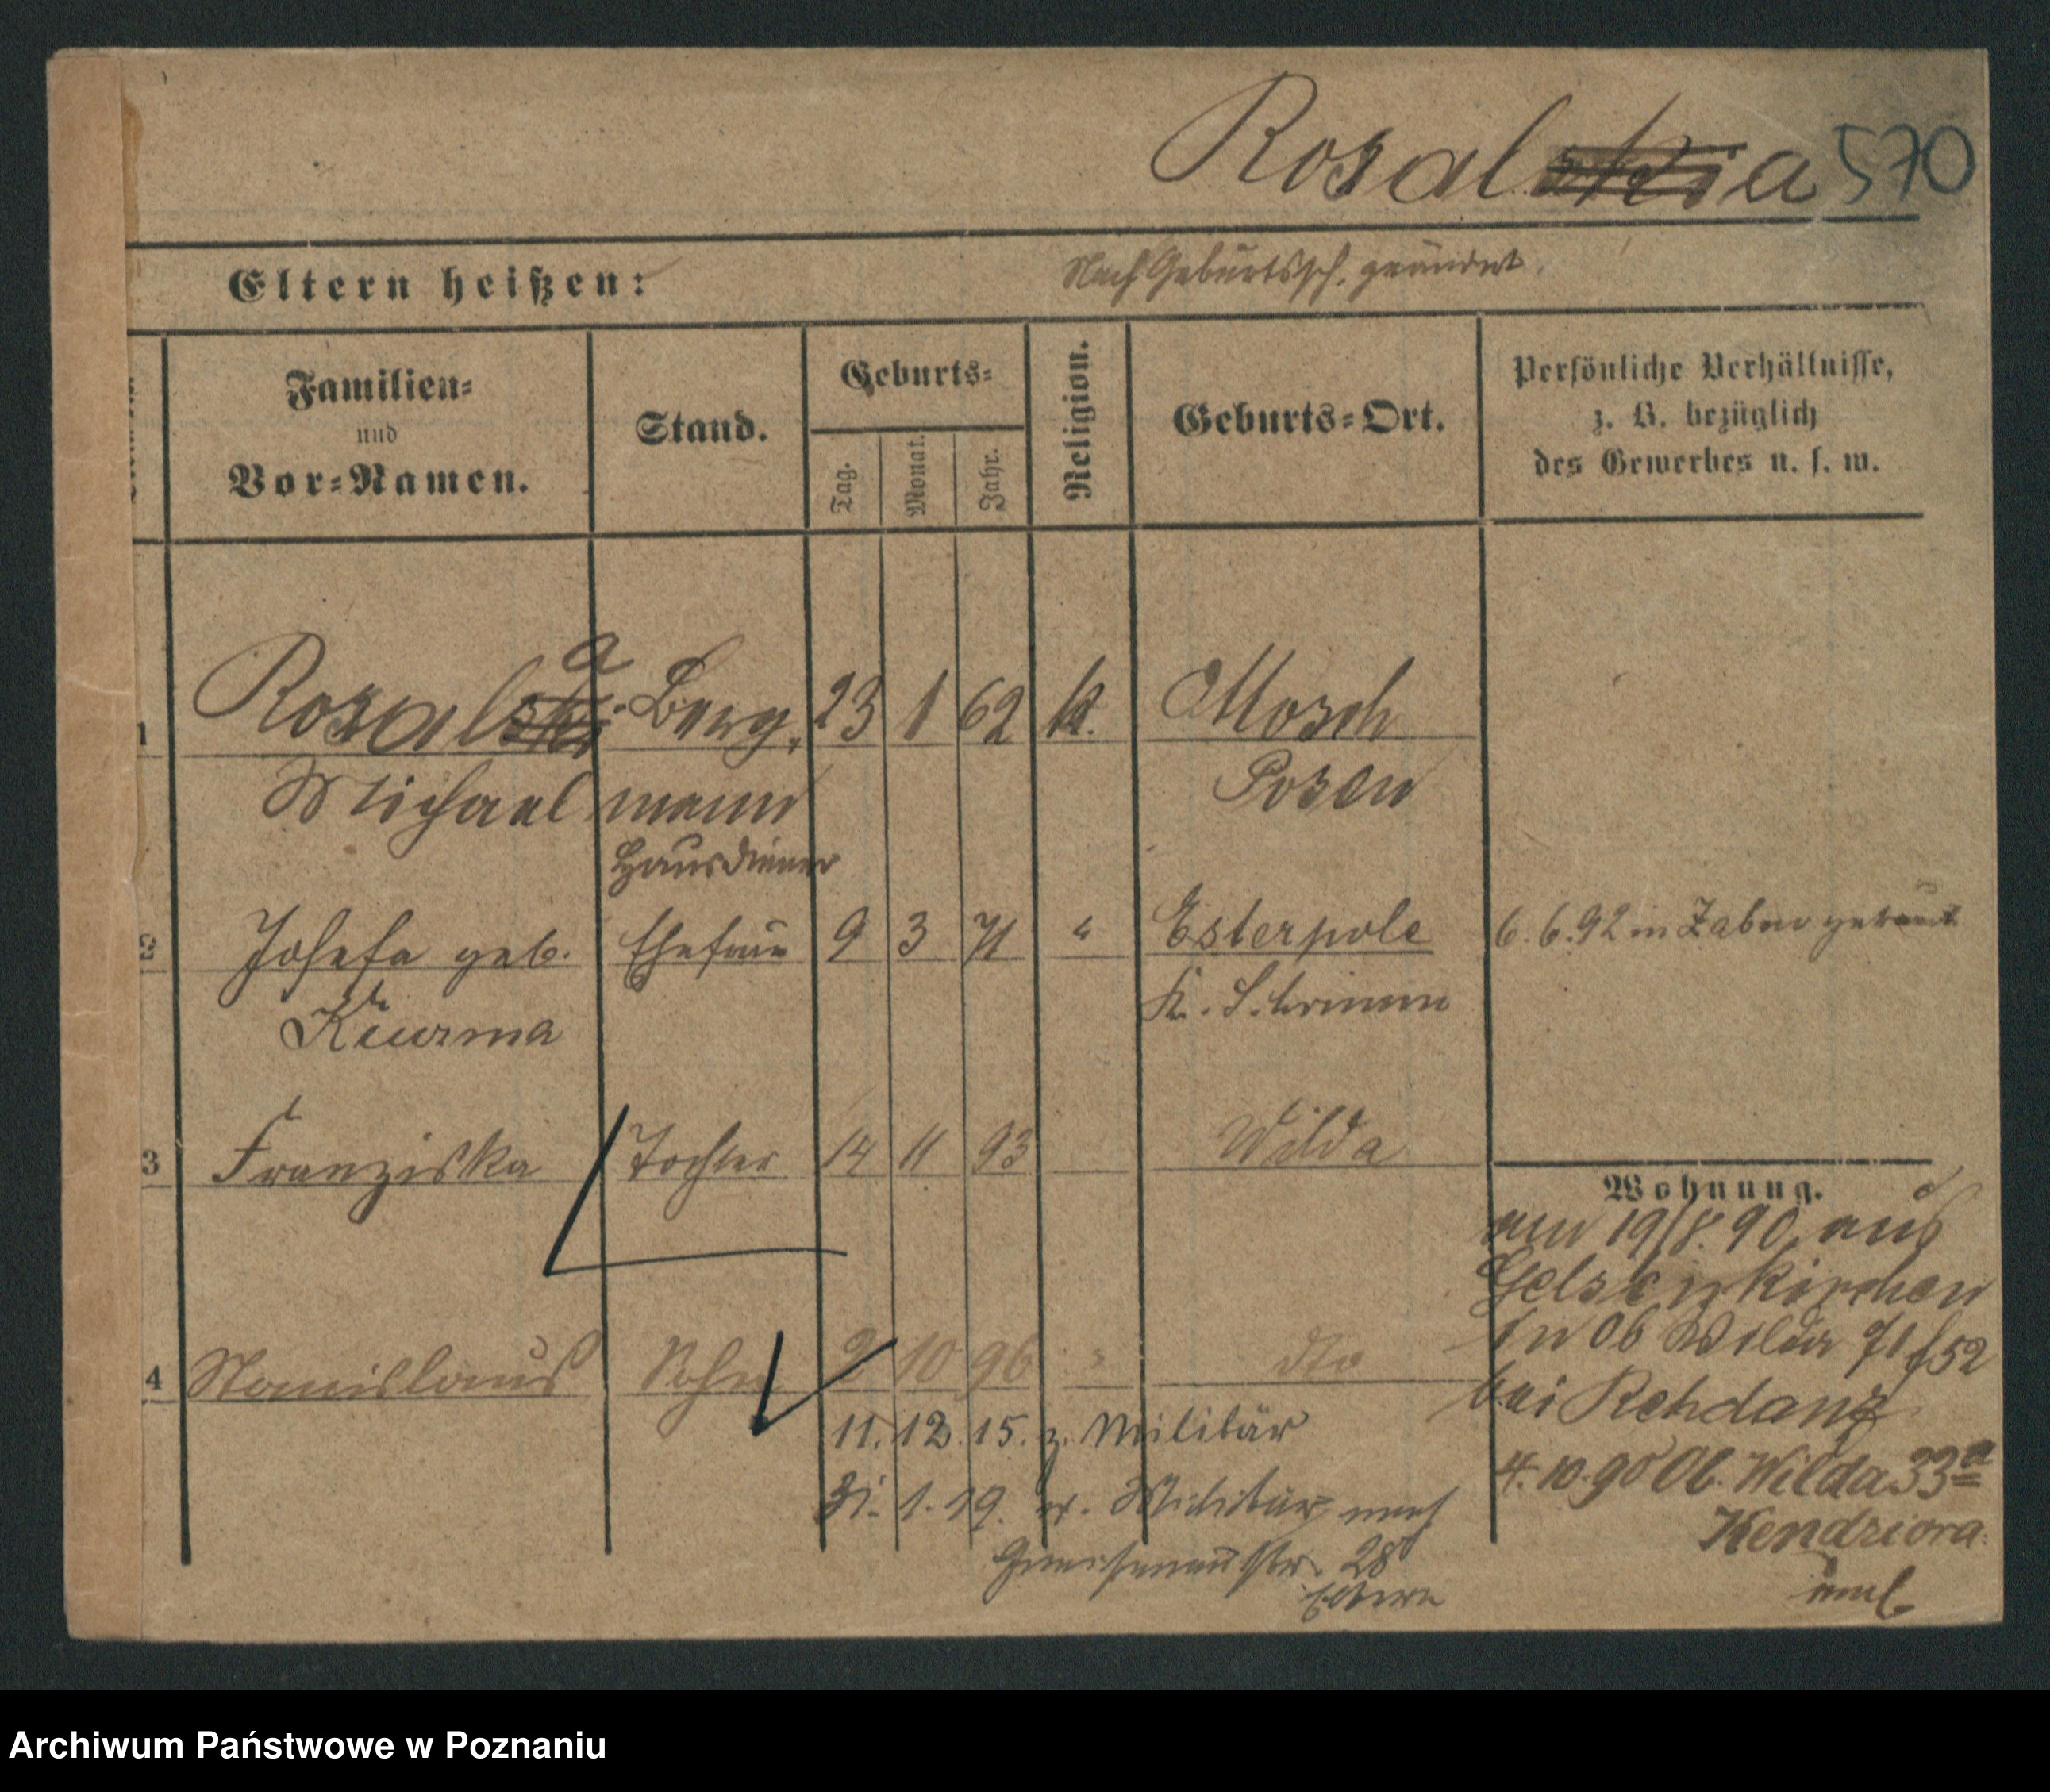 Rosalskia 570
Eltern heißen: Nach Geburtssch. geändert.
Familien-
und
Vor-Namen.
Stand.
Geburts-
Tag.
Monat.
Jahr.
Religion.
Geburts-Ort.
Persönliche Verhältnisse,
z. B. bezüglich
des Gewerbes u. s. w.
a
1 Rosalski Berg, 23 1 62 k. Mosch
Michael mann Posen
Hausdiener
2 Josefa geb. Ehefrau 9 3 71 " Esterpole 6.6.92 in Zabno getraut
K. Schrimm
3 Franziska Tochter 14 11 93 Wilda
4 Stanislaus Sohn 2 10 96 " dto
11. 12. 15. z. Militär
31. 1. 19. v. Militär nach
Gneisenaustr. 28
Eltern
Wohnung.
am 19/8. 90 aus
Gelsenkirchen
in Ob Wilda 71/52
bei Rehdanz
4. 10. 90 Ob. Wilda 33a
Kendziora
Archiwum Państwowe w Poznaniu